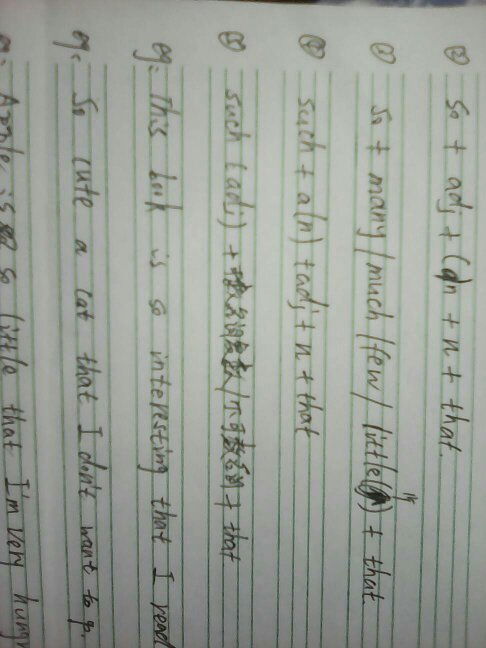 ② so + adj + (a)n + n + that.
③ so + many / much / few / little (n) + that.
④ such + a(n) + adj + n + that
⑤ such (adj) + 可数名词复数 / 不可数名词 + that
eg: This book is so interesting that I read
eg: So cute a cat that I don't want to go.
Apple is so little that I'm very hungry